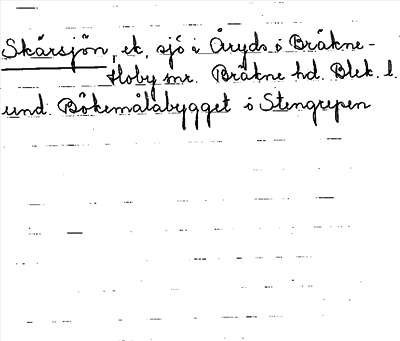 Skärsjön, ek, sjö i Åryds o Bräkne-
Hoby snr. Bräkne hd. Blek. l.
und. Bökemålabygget o Stengrepen